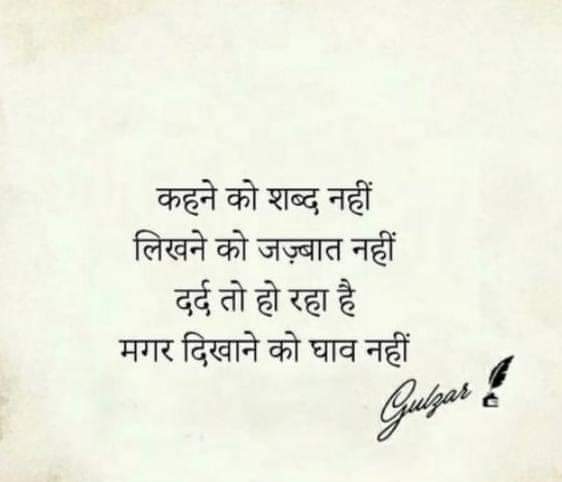 कहने को शब्द नहीं
लिखने को जज़्बात नहीं
दर्द तो हो रहा है
मगर दिखाने को घाव नहीं
Gulzar